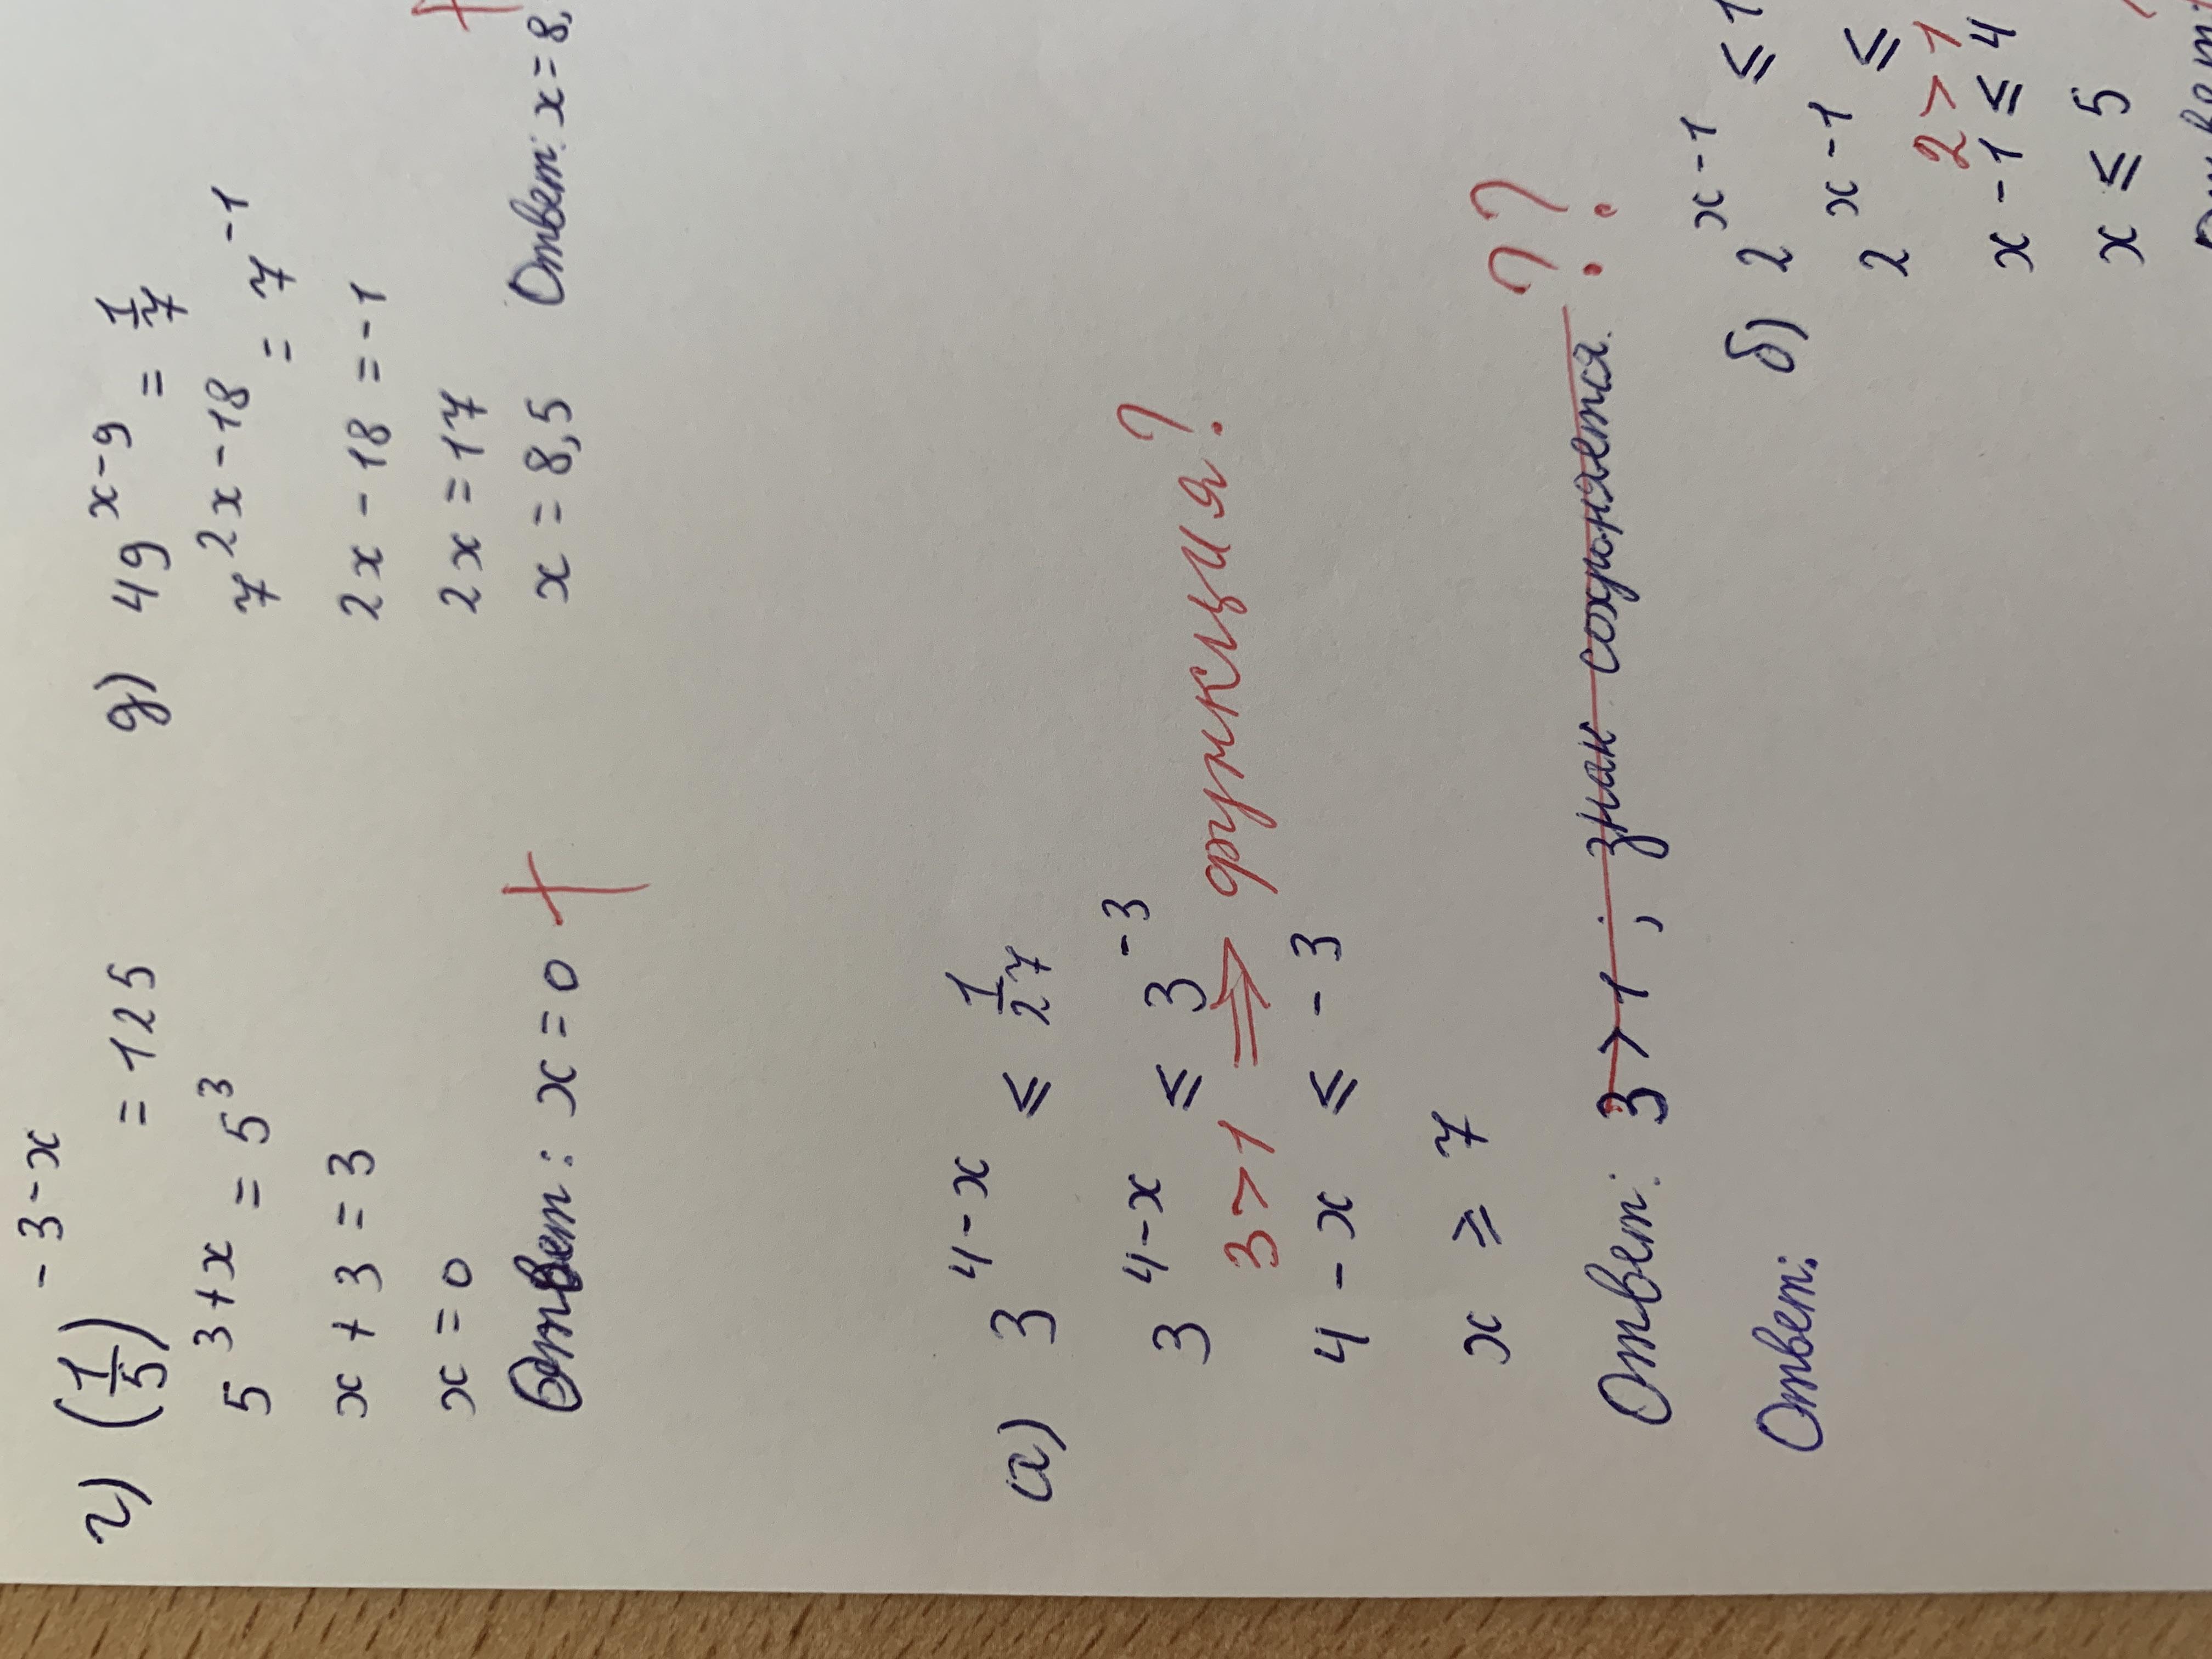 г) (1/5)^-3-x = 125
5^3+x = 5^3
x + 3 = 3
x = 0
Ответ: x = 0 +
д) 49^x-9 = 1/7
7^2x-18 = 7^-1
2x - 18 = -1
2x = 17
x = 8,5 Ответ: x = 8,
а) 3^4-x ≤ 1/27
3^4-x ≤ 3^-3
3 > 1 ⇒ функция?
4 - x ≤ -3
x ≥ 7
Ответ: 3 > 1 ; знак сохраняется. ??
Ответ:
б) 2^x-1 ≤ 1
2^x-1 ≤
2 > 1
x - 1 ≤ 4
x ≤ 5